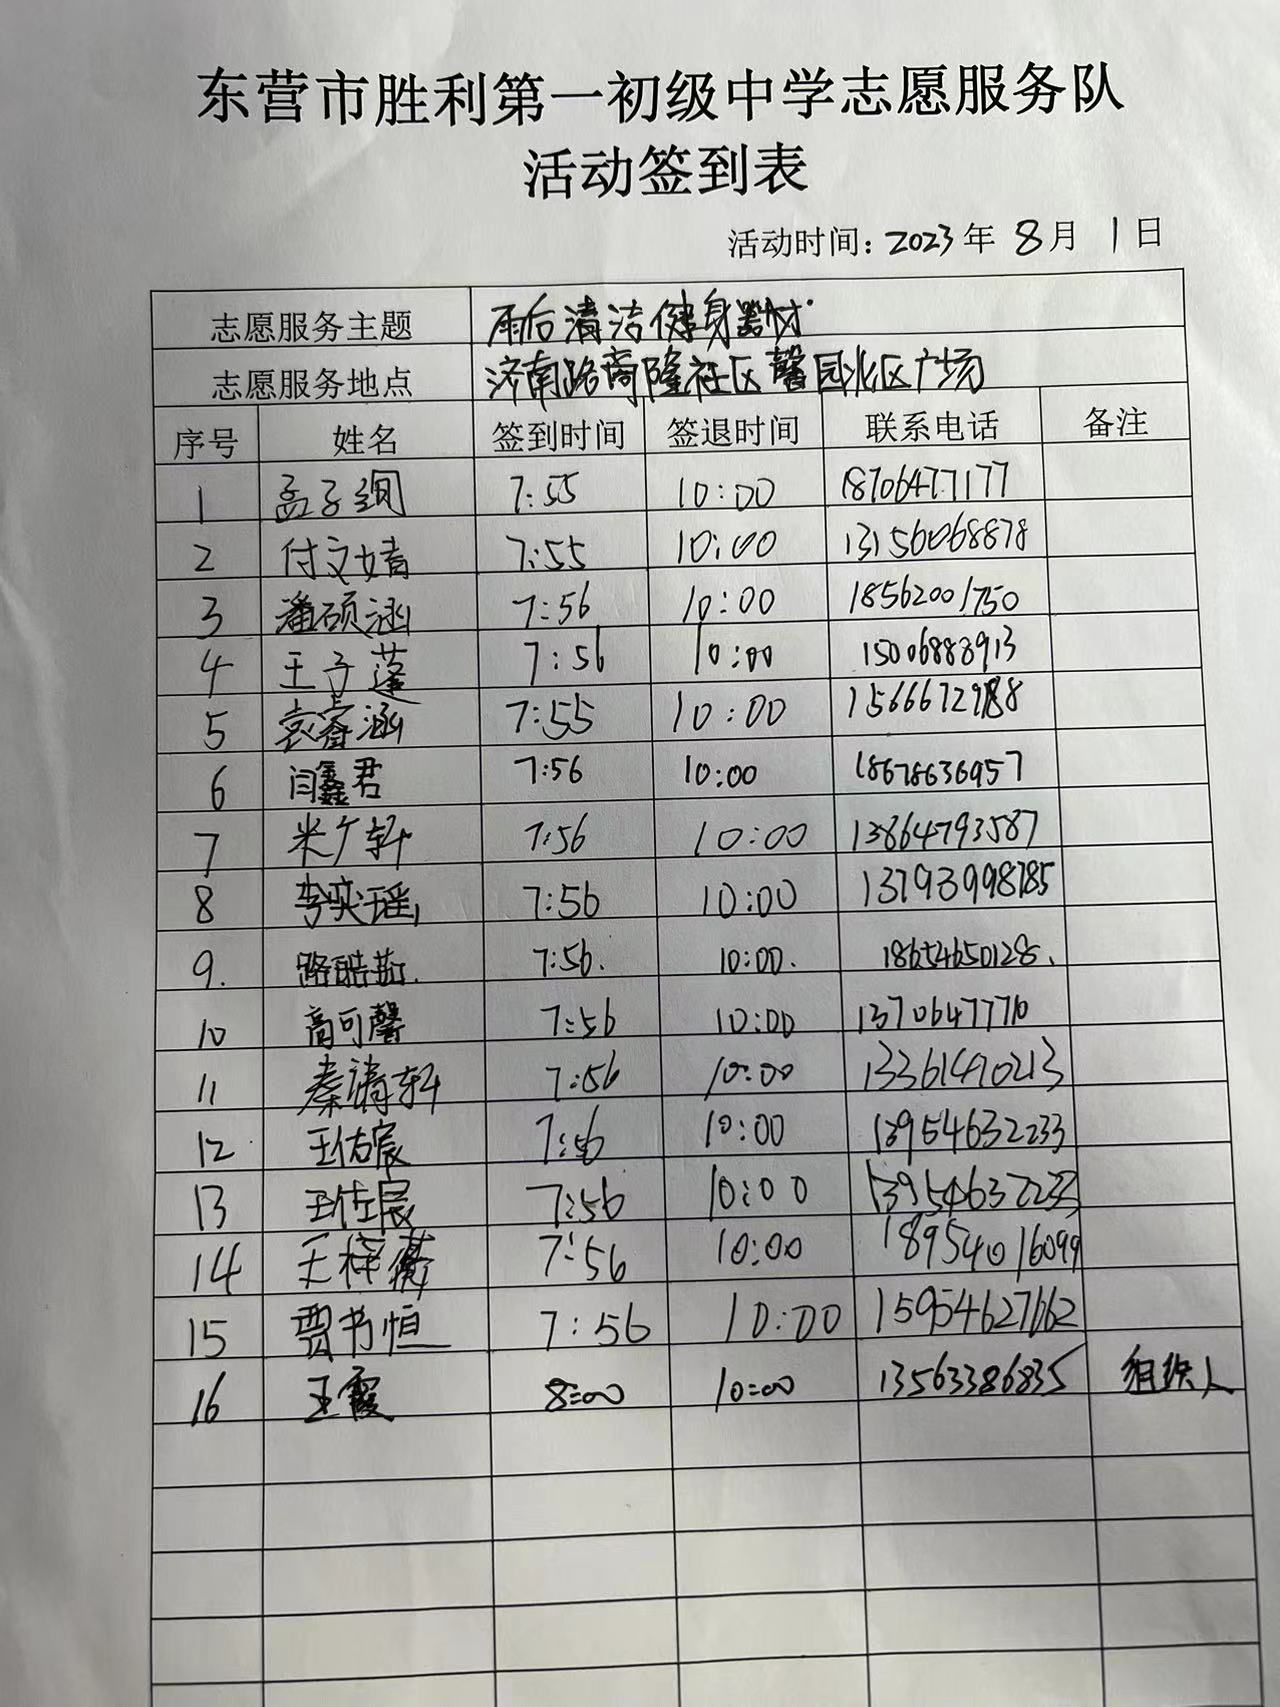 东营市胜利第一初级中学志愿服务队
活动签到表
活动时间: 2023 年 8 月 1 日
志愿服务主题 雨后清洁健身器材
志愿服务地点 济南路商隆社区馨园北区广场
序号 姓名 签到时间 签退时间 联系电话 备注
1 孟子绚 7:55 10:00 18706477177
2 付文婧 7:55 10:00 13156068878
3 潘硕涵 7:56 10:00 18562001750
4 王子蓬 7:56 10:00 15006888913
5 袁睿涵 7:55 10:00
6 闫鑫君 7:56 10:00 18678636957
7 米广轩 7:56 10:00 13864793587
8 李奕瑶 7:56 10:00 13793998785
9. 路皓茹. 7:56. 10:00. 18654650128.
10 高可馨 7:56 10:00 13706477710
11 秦清轩 7:56 10:00 13361490213
12 王佑宸 7:56 10:00 13954632233
13 王佐宸 7:56 10:00 13954632233
14 王梓蘅 7:56 10:00 18954016099
15 贾书恒 7:56 10:00 15954627662
16 王霞 8:00 10:00 13563386835 组织人